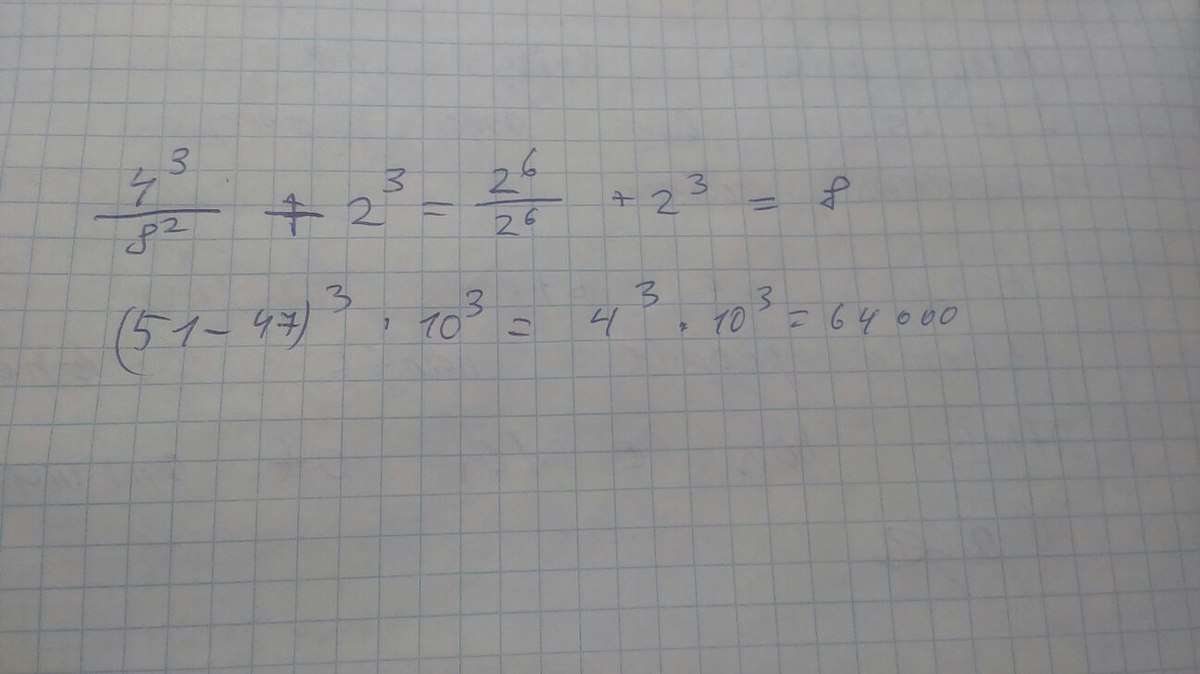 4³/8² + 2³ = 2⁶/2⁶ + 2³ = 8
(51 - 47)³ · 10³ = 4³ · 10³ = 64000